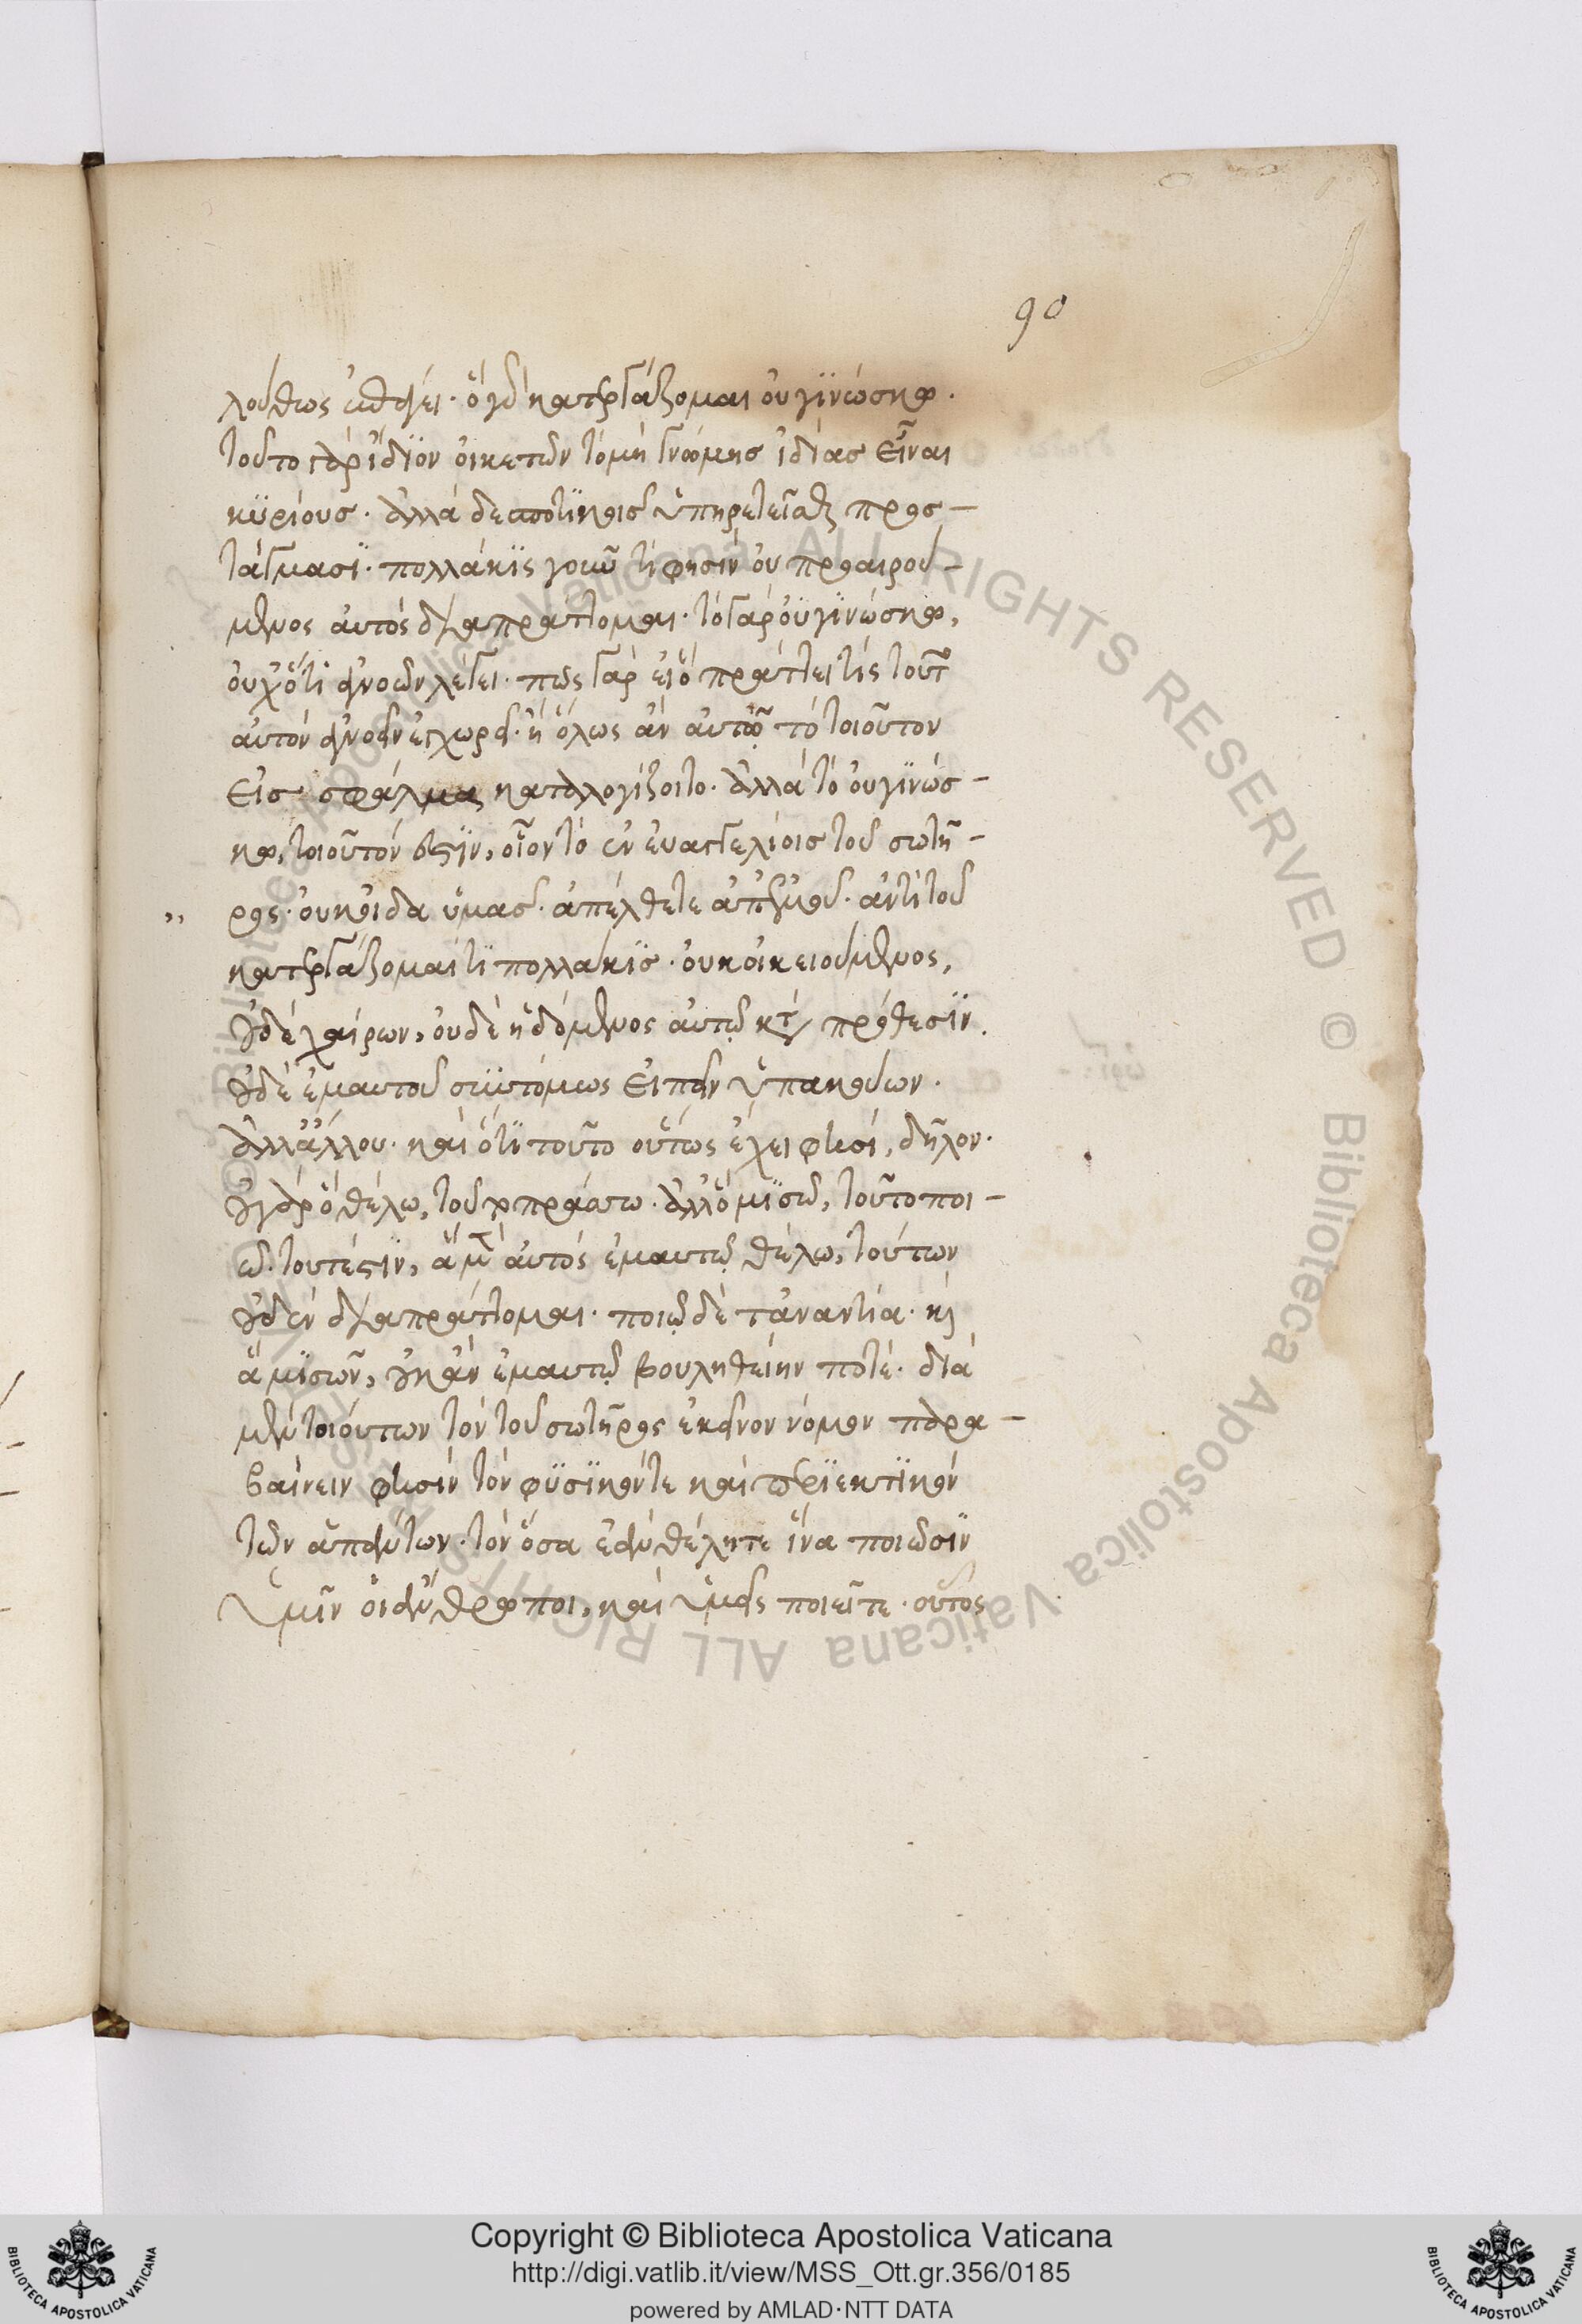 90
λούθως ἐπάγει· ὃ γὰρ κατεργάζομαι οὐ γϊνώσκω·
τοῦτο γὰρ ἴδϊον οἰκετῶν τὸ μὴ γνώμησ ἰδίασ εἶναι
κϋρίουσ· ἀλλὰ δεσποτϊκοῖσ ὑπηρετεῖσθαι προσ-
τάγμασϊ· πολλάκϊς γοῦν τί φησϊν οὐ προαιρού-
μενος αὐτὸς διαπράττομαι· τὸ γὰρ οὐ γϊνώσκω,
οὐχ ὅτι ἀγνοῶν λέγει· πῶς γὰρ εἰ ὃ πράττει τίς τοῦτ
αὐτὸν ἀγνοεῖν ἐγχωρεῖ· ἢ ὅλως ἂν αὐτῶ τὸ τοιοῦτον
εἰσ σφάλμα καταλογίζοιτο· ἀλλὰ τὸ οὐ γϊνώσ-
κω, τοιοῦτόν ἐστϊν, οἷον τὸ ἐν εὐαγγελίοισ τοῦ σωτῆ-
ρος· οὐκ οἶδα ὑμᾶσ· ἀπέλθετε ἀπ' ἐμοῦ· ἀντὶ τοῦ
κατεργάζομαί τϊ πολλάκϊσ· οὐκ οἰκειούμενος,
οὐδὲ χαίρων, οὐδὲ ἡδόμενος αὐτῶ κατὰ πρόθεσϊν.
οὐδὲ ἐμαυτοῦ σϋντόμως εἰπεῖν ὑπακούων·
ἀλλ' ἄλλου· καὶ ὅτϊ τοῦτο οὕτως ἔχει φησί, δῆλον·
οὐ γὰρ ὃ θέλω, τοῦτο πράσσω· ἀλλ' ὃ μϊσῶ, τοῦτο ποι-
ῶ· τουτέστϊν, ἃ μὲν αὐτὸς ἐμαυτῶ θέλω, τούτων
οὐδὲν διαπράττομαι· ποιῶ δὲ τἀναντία· καὶ
ἃ μϊσῶν, οὐκ ἂν ἐμαυτῶ βουληθείην ποτέ· διὰ
μὲν τοιούτων τὸν τοῦ σωτῆρος ἐκεῖνον νόμον παρα-
βαίνειν φησὶν τὸν φϋσϊκόν τε καὶ περϊεκτϊκὸν
τῶν ἁπάντων· τὸν ὅσα ἐὰν θέλητε ἵνα ποιῶσϊν
ὑμῖν οἱ ἄνθρωποι, καὶ ὑμεῖς ποιεῖτε· οὗτος
Copyright © Biblioteca Apostolica Vaticana
http://digi.vatlib.it/view/MSS_Ott.gr.356/0185
powered by AMLAD·NTT DATA